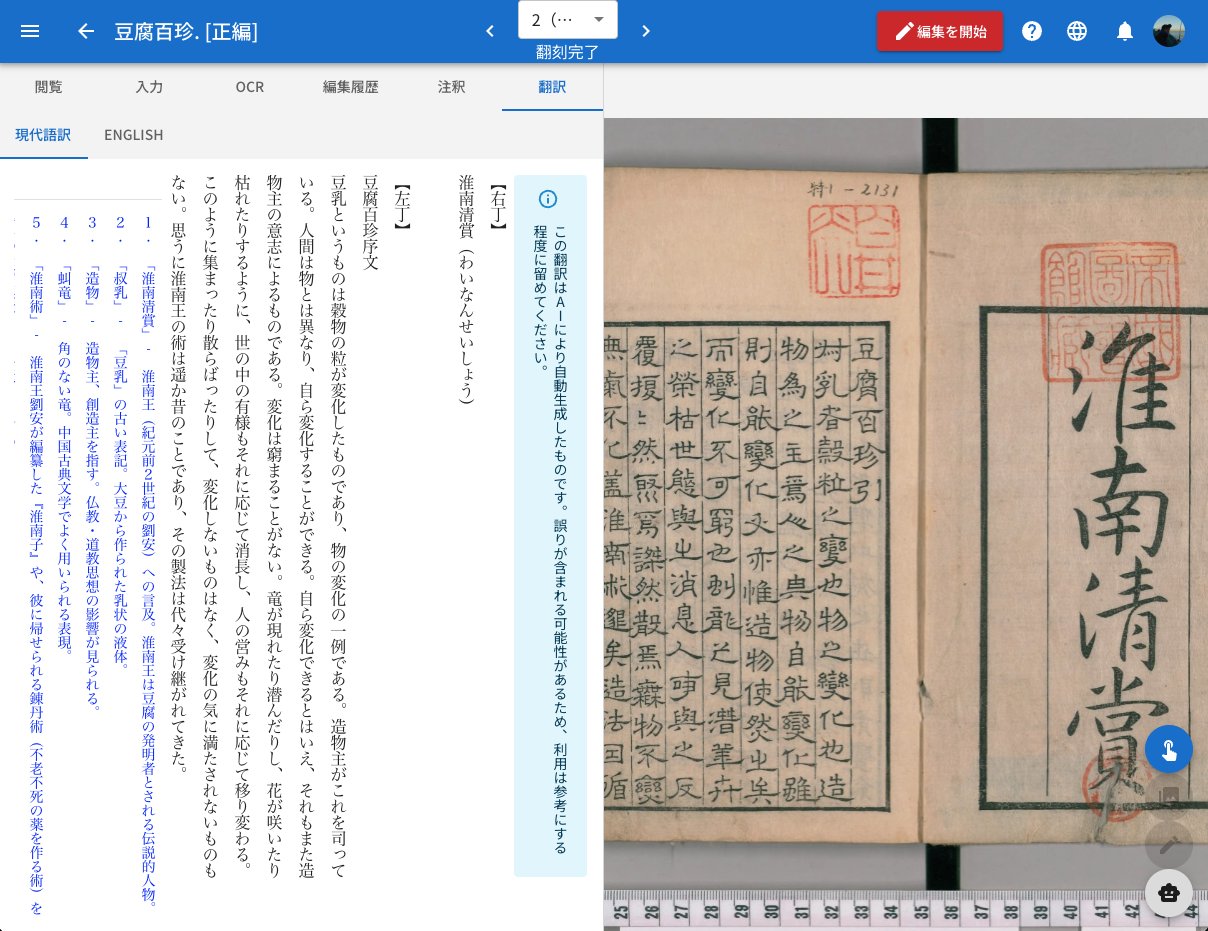 豆腐百珍. [正編]
2（…
翻刻完了
編集を開始
閲覧
入力
OCR
編集履歴
注釈
翻訳
現代語訳
ENGLISH
この翻訳はAIにより自動生成したものです。誤りが含まれる可能性があるため、利用は参考にする
程度に留めてください。
【右丁】
淮南清賞（わいなんせいしょう）
【左丁】
豆腐百珍序文
豆乳というものは穀物の粒が変化したものであり、物の変化の一例である。造物主がこれを司って
いる。人間は物とは異なり、自ら変化することができる。自ら変化できるとはいえ、それもまた造
物主の意志によるものである。変化は窮まることがない。竜が現れたり潜んだりし、花が咲いたり
枯れたりするように、世の中の有様もそれに応じて消長し、人の営みもそれに応じて移り変わる。
このように集まったり散らばったりして、変化しないものはなく、変化の気に満たされないものも
ない。思うに淮南王の術は遥か昔のことであり、その製法は代々受け継がれてきた。
1. 「淮南清賞」- 淮南王（紀元前2世紀の劉安）への言及。淮南王は豆腐の発明者とされる伝説的人物。
2. 「叔乳」- 「豆乳」の古い表記。大豆から作られた乳状の液体。
3. 「造物」- 造物主、創造主を指す。仏教・道教思想の影響が見られる。
4. 「虯竜」- 角のない竜。中国古典文学でよく用いられる表現。
5. 「淮南術」- 淮南王劉安が編纂した『淮南子』や、彼に帰せられる錬丹術（不老不死の薬を作る術）を
特1-2131
淮南清賞
豆腐百珍引
尗乳者穀粒之變也物之變化也造
物為之主焉人之與物自能變化雖
則自能變化又亦惟造物使然也矣
而變化不可窮也虯龍之見潛華卉
之榮枯世態與之消息人事與之反
覆擾々然煦焉謀然散焉靡物不變
無氣不化蓋淮南術邈矣造法因循
25 26 27 28 29 30 31 32 33 34 35 36 37 38 39 40 41 42 44